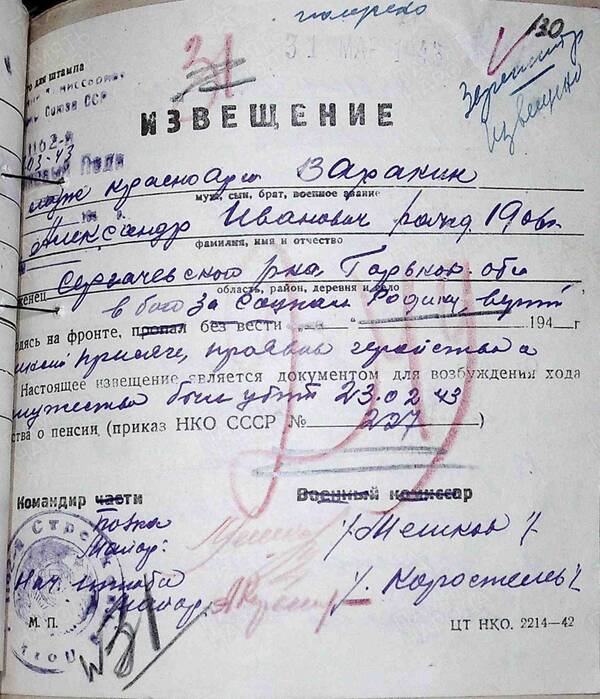 130
31
31 МАР 1943
Зарегистр
извещено
то для штампа
Союза ССР
1162-й
ИЗВЕЩЕНИЕ
муж красноарм Варакин
муж, сын, брат, военное звание
Александр Иванович рожд 1906г
фамилия, имя и отчество
Сергачевского р-на Горьков. обл
область, район, деревня и село
в бою за социал Родину
одясь на фронте, пропал без вести „ “ 194 г
присяге, проявив геройство и
Настоящее извещение является документом для возбуждения хода
мужество был убит 23.02.43
ства о пенсии (приказ НКО СССР № 227 )
Командир части Военный комиссар
полка
Майор: /Мешков/
Нач. штаба
майор /Коростелев/
М. П.
№31
ЦТ НКО. 2214—42